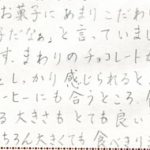 お菓子にあまりこだわり
子だなぁ」と言っていまし
す。まわりのチョコレートが
とし、かり感じられると、
ーヒーにも合うところ、1
る大きさもとても良い
ちろん大きくても食べきり